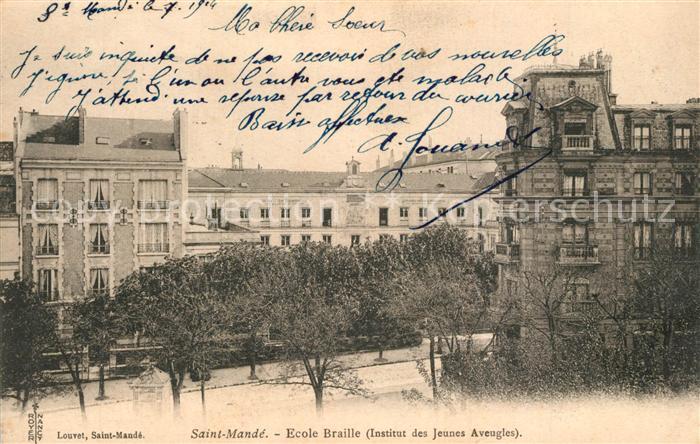 St Mandé le 7, 1914
Ma Chére Soeur
Je suis inquiete de ne pas recevoir de vos nouvelles
j'ignore, si l'un ou l'autre vous ete malade.
J'attend une reponse par retour du courrier
Baiser affectueux
A. Jouanne
copyright protection Bilderschutz
ROYER NANCY
Louvet, Saint-Mandé.
Saint-Mandé. - Ecole Braille (Institut des Jeunes Aveugles).